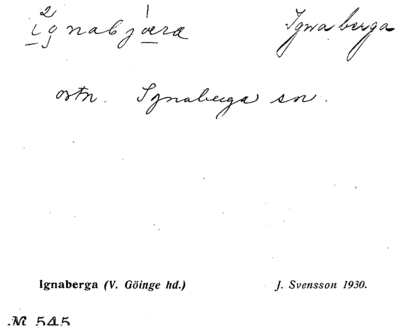 2 1
ignabjæra Ignaberga
ortn. Ignaberga sn.
Ignaberga (V. Göinge hd.) J. Svensson 1930.
№ 545